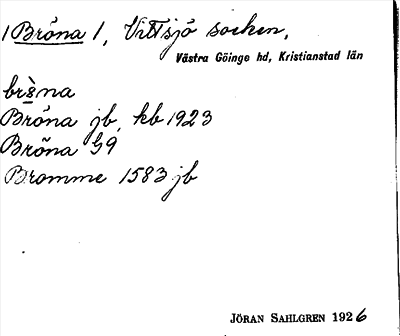 1 Bröna 1, Vittsjö socken,
Västra Göinge hd, Kristianstad län
Bröna jb, kb 1923
Bröna G9
Bromme 1583 jb
JÖRAN SAHLGREN 1926